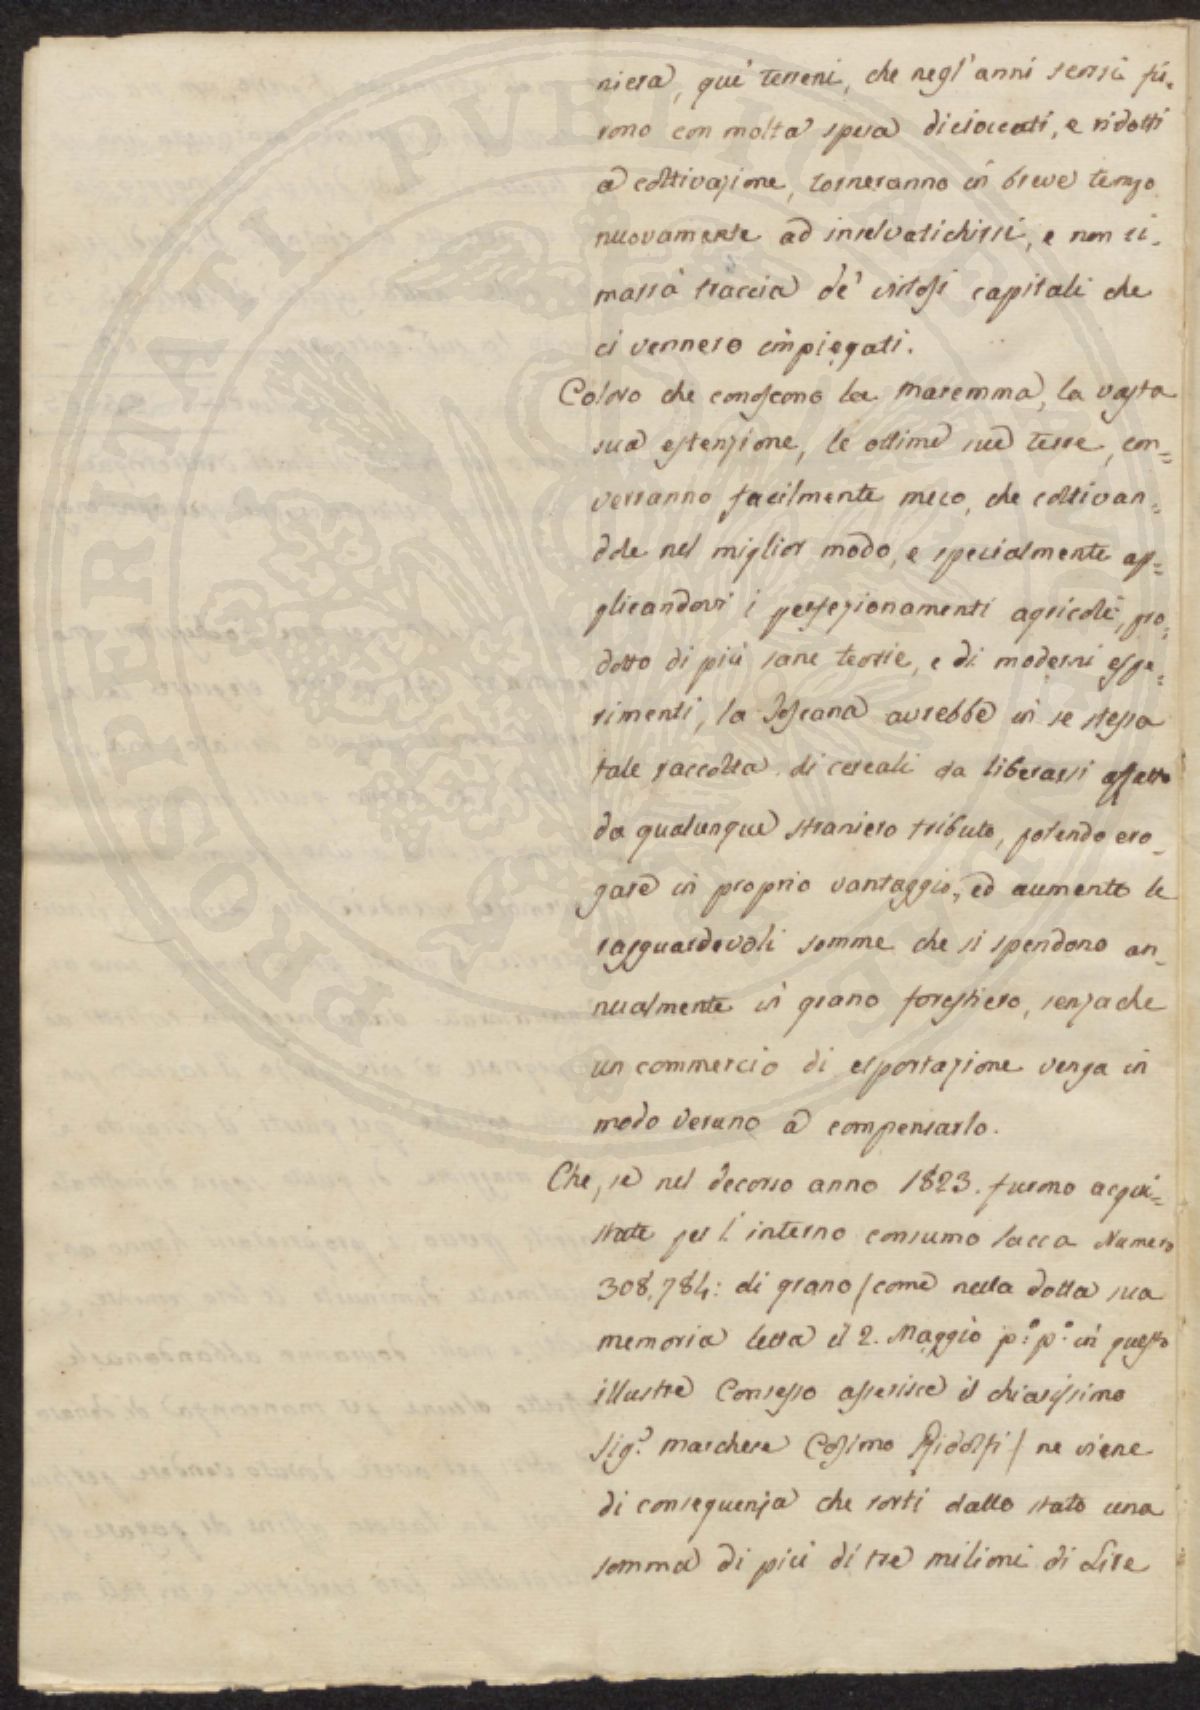 niera, que' terreni, che negl'anni scorsi fu-
rono con molta spesa dicioccati, e ridotti
a coltivazione, torneranno in breve tempo
nuovamente ad inselvatichirsi, e non ri-
marrà traccia de' vistosi capitali che
ci vennero impiegati.
Coloro che conoscono la Maremma, la vasta
sua estenzione, le ottime sue terre, con=
verranno facilmente meco, che coltivan=
dole nel miglior modo, e specialmente ap=
plicandovi i perfezionamenti agricoli, pro=
dotto di più sane teorie, e di moderni espe=
rimenti, la Toscana avrebbe in se stessa
tale raccolta di cereali da liberarsi affatto
da qualunque straniero tributo, potendo ero-
gare in proprio vantaggio, ed aumento le
ragguardevoli somme che si spendono an-
nualmente in grano forestiero, senzache
un commercio di esportazione venga in
modo veruno a compensarlo.
Che, se nel decorso anno 1823. furono acqui=
state per l'interno consumo sacca Numero
308,784: di grano (come nella dotta sua
memoria letta il 2. Maggio p:º p:º in questo
illustre Consesso asserisce il chiarissimo
Sig:r Marchese Cosimo Ridolfi) ne viene
di conseguenza che sortì dallo stato una
somma di più di tre milioni di Lire
PROSPERITATI PUBLICAE